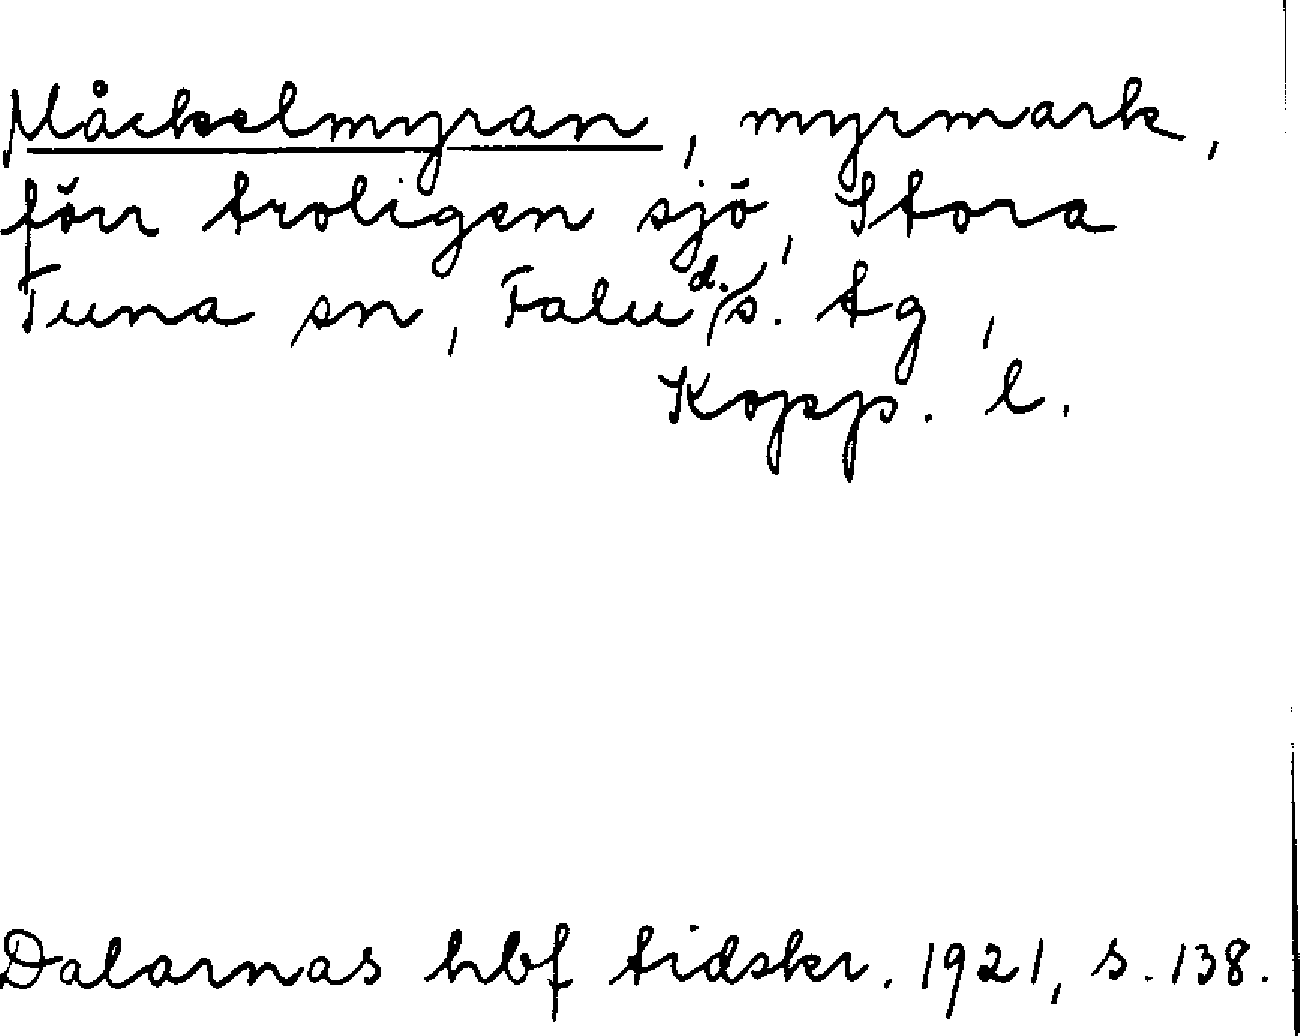 Måckelmyran, myrmark,
förr troligen sjö, Stora
Tuna sn, Falu d. s. tg,
Kopp. l.
Dalarnas hbf tidskr. 1921, s. 138.